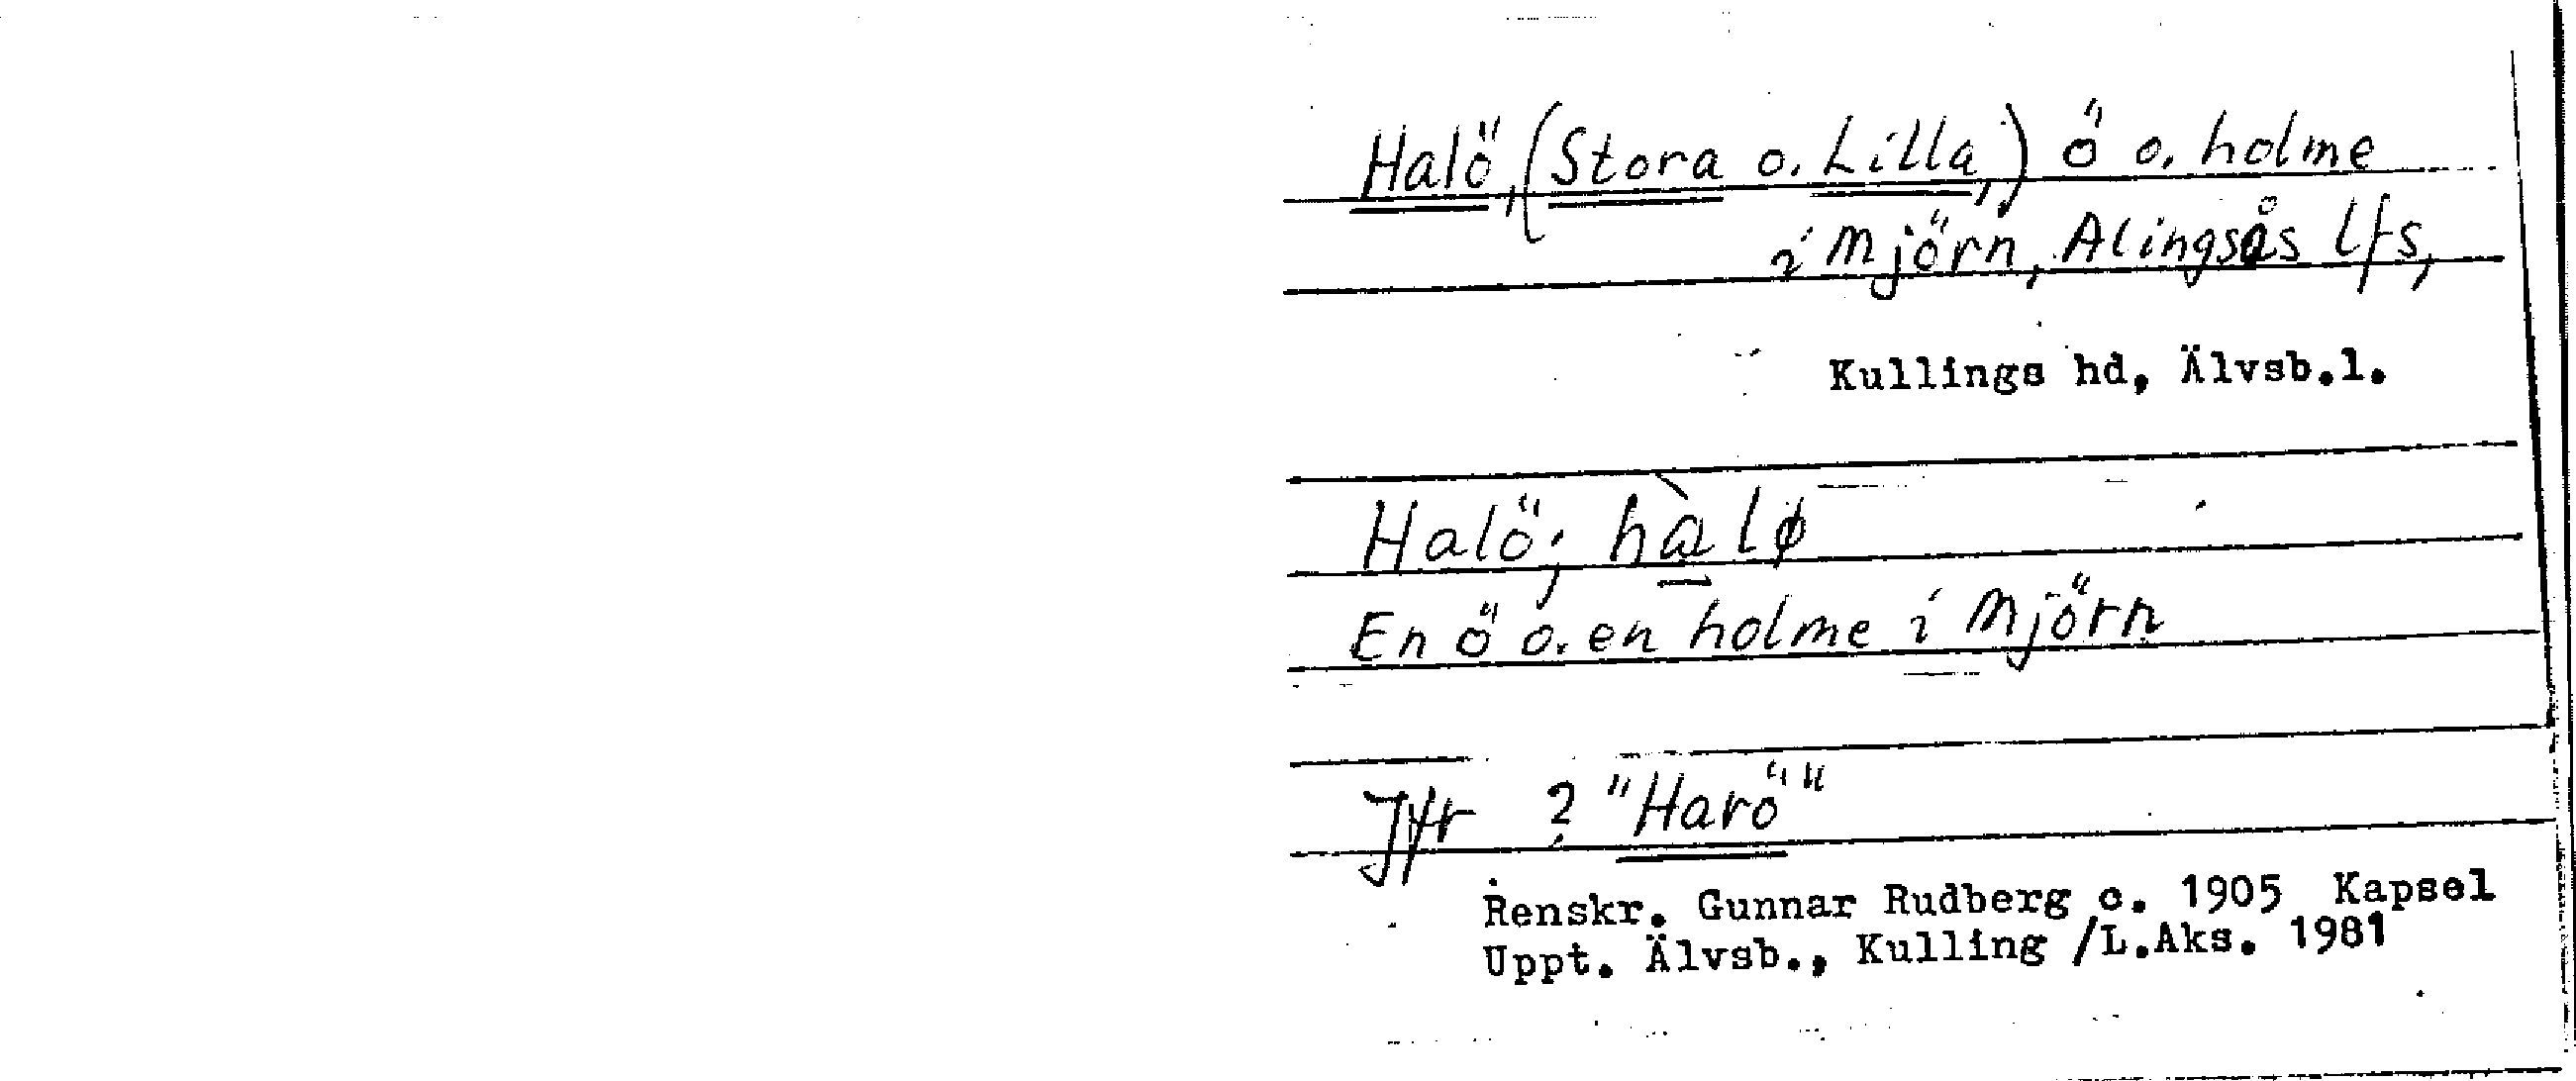 Halö, (Stora o. Lilla,) ö o. holme
i Mjörn, Alingsås lfs,
Kullings hd, Älvsb.l.
Halö; hàlø
En ö o. en holme i Mjörn
Jfr ? "Harö"
Renskr. Gunnar Rudberg c. 1905 Kapsel
Uppt. Älvsb., Kulling /L.Aks. 1981